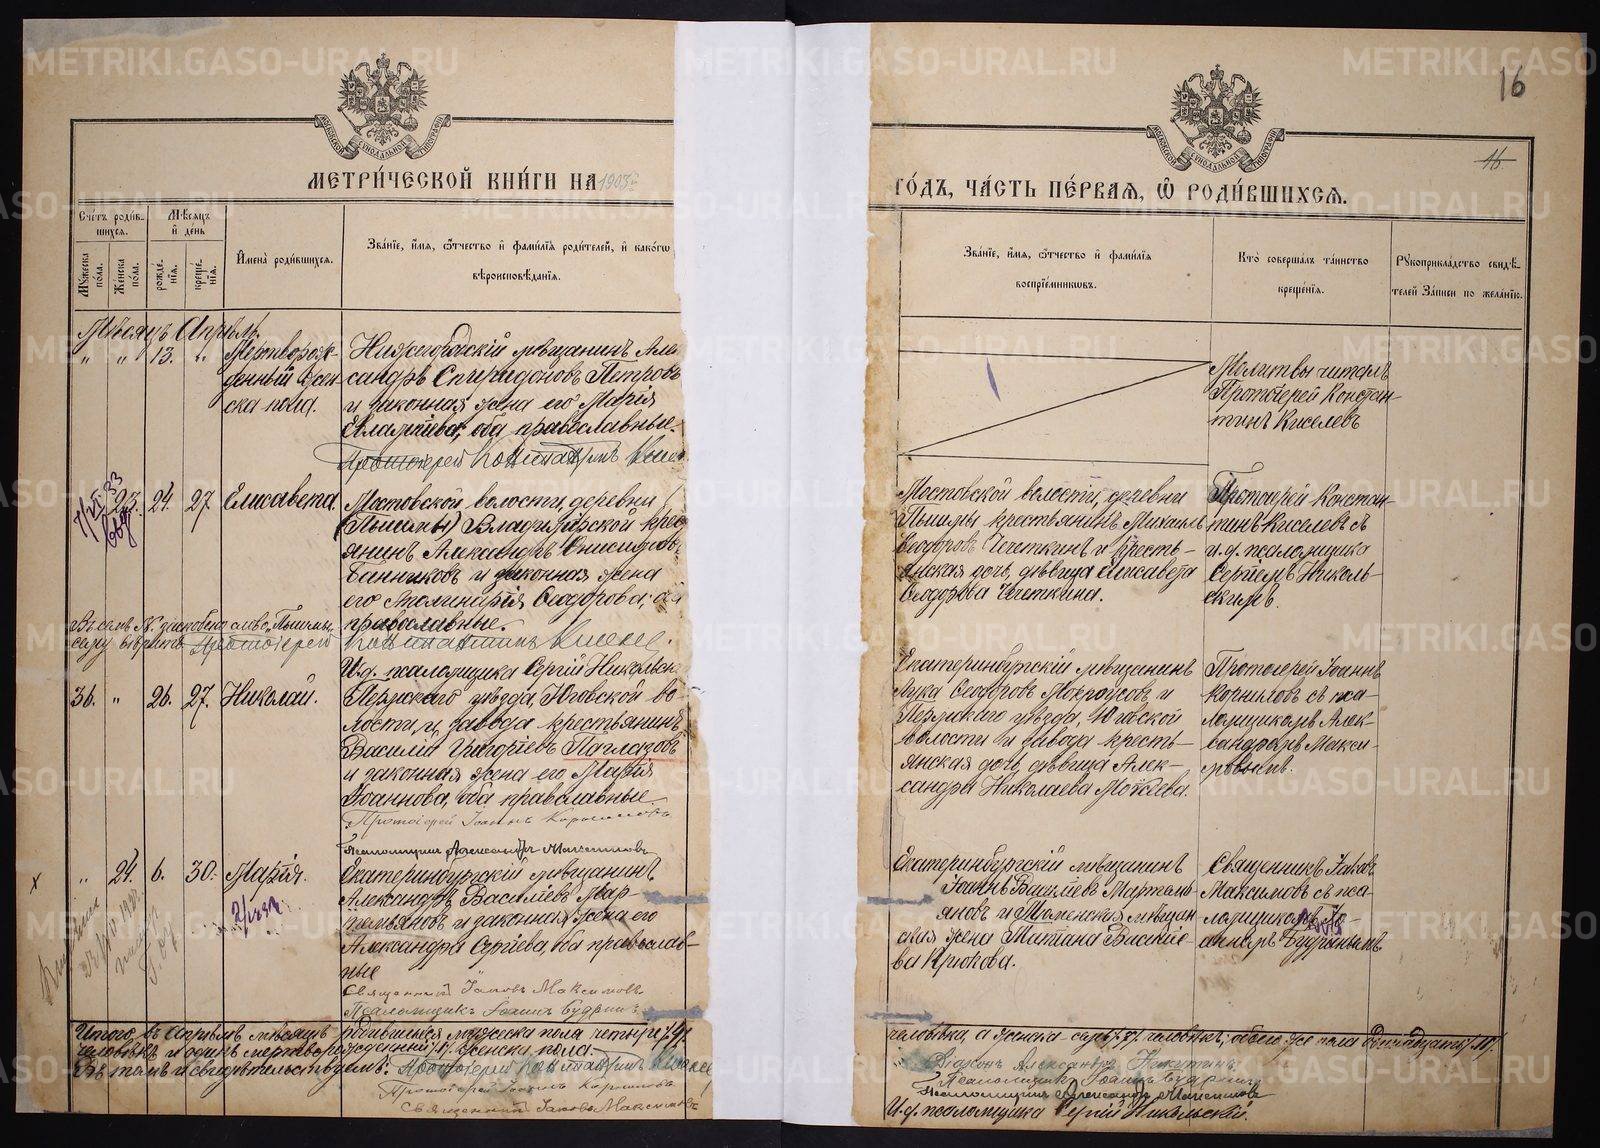 METRIKI.GASO-URAL.RU
16
16.
МЕТРИ́ЧЕСКОЙ КНИ́ГИ НА 1903й
ГО́ДЪ, ЧА́СТЬ ПЕ́РВАЯ, Ѡ РОДИ́ВШИХСЯ.
Сче́тъ роди́в-
шихся.
Мѣ́сяцъ
и҆ де́нь
Му́жеска по́ла.
Же́нска по́ла.
рожде́-
нїѧ.
креще́-
нїѧ.
И҆мена̀ роди́вшихся.
Зва́нїе, и҆́мя, ѻ҆́тчество и҆ фами́лїя роди́телей, и҆ како́гѡ
вѣроисповѣ́данїя.
Зва́нїе, и҆́мя, ѻ҆́тчество и҆ фами́лїя
воспрїе́мниковъ.
Кто̀ соверша́лъ та́инство
креще́нїя.
Рукоприкла́дство свидѣ́-
телей за́писи по жела́нїю.
Мѣсяцъ Апрѣль.
" " 13. " Мертворож-
денный жен-
ска пола.
Нижегородскій мѣщанинъ Але-
сандръ Спиридоновъ Петровъ
и законная жена его Марія
оба православные.
Протоіерей Константинъ Кисел
Молитвы читалъ
Протоіерей Констан-
тинъ Киселевъ
23. 24. 27. Елисавета.
Мостовской волости, деревни
(Пышмы) Владимірской крес
янинъ Александръ Онисимовъ
Банниковъ и законная жена
его Аполинарія Ѳеодорова; оба
православные.
Протоіерей Константинъ Киселе
И.д. псаломщика Сергій Никольск
Мостовской волости, деревни
Пышмы крестьянинъ Михаилъ
Ѳеодоровъ Чечеткинъ и кресть-
янская дочь, дѣвица Елисавета
Ѳеодорова Чечеткина.
Протоіерей Констан-
тинъ Киселевъ съ
и.д. псаломщика
Сергіемъ Николь-
скимъ.
36. " 26. 27. Николай.
Пермскаго уѣзда, Юговской во-
лости и завода крестьянинъ
Василій Григоріевъ Паглазовъ
и законная жена его Марія
Іоаннова, оба православные.
Протоіерей Іоаннъ Корниловъ
Псаломщикъ Александръ Максимовъ
Екатеринбургскій мѣщанинъ
Лука Ѳеодоровъ Мокроусовъ и
Пермскаго уѣзда, Юговской
волости и завода кресть-
янская дочь, дѣвица Алек-
сандра Николаева Мокѣева.
Протоіерей Іоаннъ
Корниловъ съ пса-
ломщикомъ Алек-
сандромъ Макси-
мовымъ.
" 24. 6. 30. Марія.
Екатеринбургскій мѣщанинъ
Александръ Василіевъ Мар-
темьяновъ и законная жена его
Александра Сергіева, оба православ-
ные
Священникъ Іаковъ Максимовъ
Псаломщикъ Іоаннъ Будринъ
Екатеринбургскій мѣщанинъ
Іоаннъ Василіевъ Мартемь-
яновъ и Тюменская мѣщан
ская жена Татіана Василіе-
ва Крюкова.
Священникъ Іаковъ
Максимовъ съ пса-
ломщикомъ Іо-
анномъ Будринымъ
Итого въ Апрѣлѣ мѣсяцѣ родившихся мужеска пола четыре /4/
человѣка, а женска семь /7/ человѣкъ, обоего же пола одиннадцать /11/
человѣкъ и одинъ мертворожденный /1/ женска пола.
Въ томъ и свидѣтельствуемъ: Протоіерей Константинъ Киселе
Протоіерей Іоаннъ Корниловъ
Священникъ Іаковъ Максимовъ
Діаконъ Александръ Никитинъ
Псаломщикъ Іоаннъ Будринъ
Псаломщикъ Александръ Максимовъ
И.д. псаломщика Сергій Никольскій.